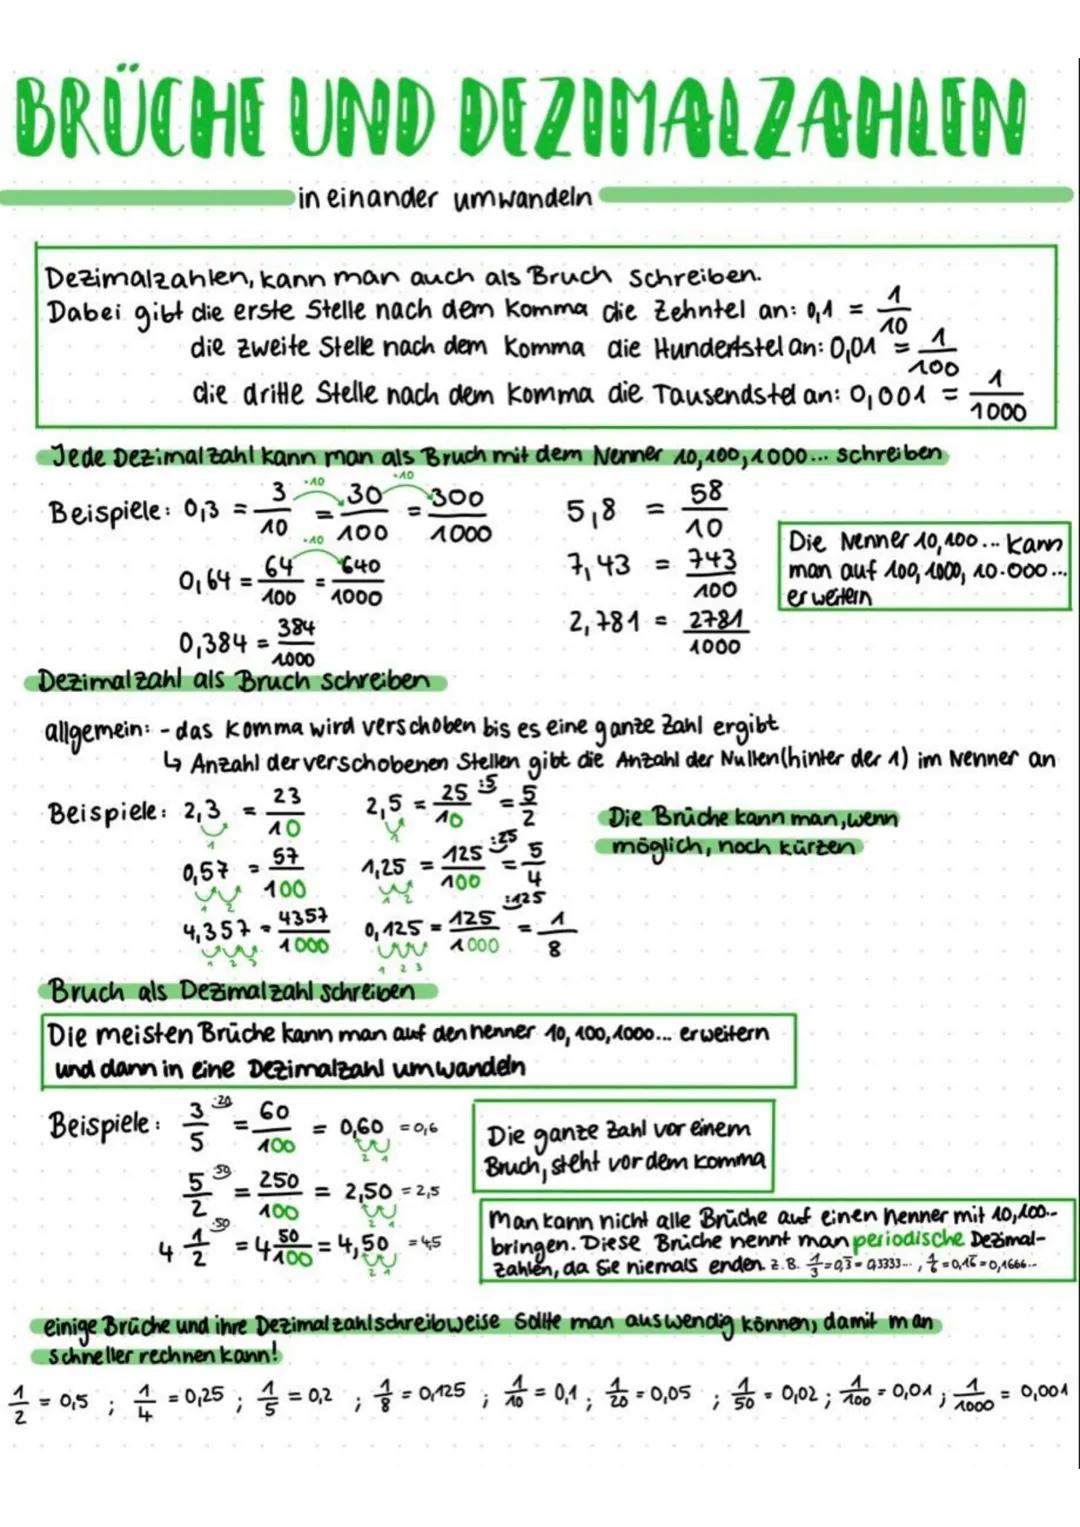 BRÜCHE UND DEZIMALZAHLEN
in einander umwandeln
Dezimalzahlen, kann man auch als Bruch schreiben.
Dabei gibt die erste Stelle nach dem Komma die Zehntel an: 0,1 = 1/10
die zweite Stelle nach dem Komma die Hundertstel an: 0,01 = 1/100
die dritte Stelle nach dem Komma die Tausendstel an: 0,001 = 1/1000
Jede Dezimalzahl kann man als Bruch mit dem Nenner 10,100,1000... schreiben
Beispiele: 0,3 = 3/10 ·10 = 30/100 ·10 = 300/1000
0,64 = 64/100 ·10 = 640/1000
0,384 = 384/1000
5,8 = 58/10
7,43 = 743/100
2,781 = 2781/1000
Die Nenner 10,100... kann
man auf 100, 1000, 10.000...
erweitern
Dezimalzahl als Bruch schreiben
allgemein: - das Komma wird verschoben bis es eine ganze Zahl ergibt
↳ Anzahl der verschobenen Stellen gibt die Anzahl der Nullen (hinter der 1) im Nenner an
Beispiele: 2,3 = 23/10
1
0,57 = 57/100
1 2
4,357 = 4357/1000
1 2 3
2,5 = 25/10 :5 = 5/2
1
1,25 = 125/100 :25 = 5/4
1 2
0,125 = 125/1000 :125 = 1/8
1 2 3
Die Brüche kann man, wenn
möglich, noch kürzen
Bruch als Dezimalzahl schreiben
Die meisten Brüche kann man auf den nenner 10, 100, 1000... erweitern
und dann in eine Dezimalzahl umwandeln
Beispiele: 3/5 ·20 = 60/100 = 0,60 = 0,6
2 1
5/2 ·50 = 250/100 = 2,50 = 2,5
2 1
4 1/2 ·50 = 4 50/100 = 4,50 = 4,5
2 1
Die ganze Zahl vor einem
Bruch, steht vor dem Komma
Man kann nicht alle Brüche auf einen Nenner mit 10,100...
bringen. Diese Brüche nennt man periodische Dezimal-
zahlen, da sie niemals enden. z.B. 1/3 = 0,3̅ = 0,3333..., 1/6 = 0,16̅ = 0,1666...
einige Brüche und ihre Dezimalzahlschreibweise sollte man auswendig können, damit man
schneller rechnen kann!
1/2 = 0,5 ; 1/4 = 0,25 ; 1/5 = 0,2 ; 1/8 = 0,125 ; 1/10 = 0,1 ; 1/20 = 0,05 ; 1/50 = 0,02 ; 1/100 = 0,01 ; 1/1000 = 0,001